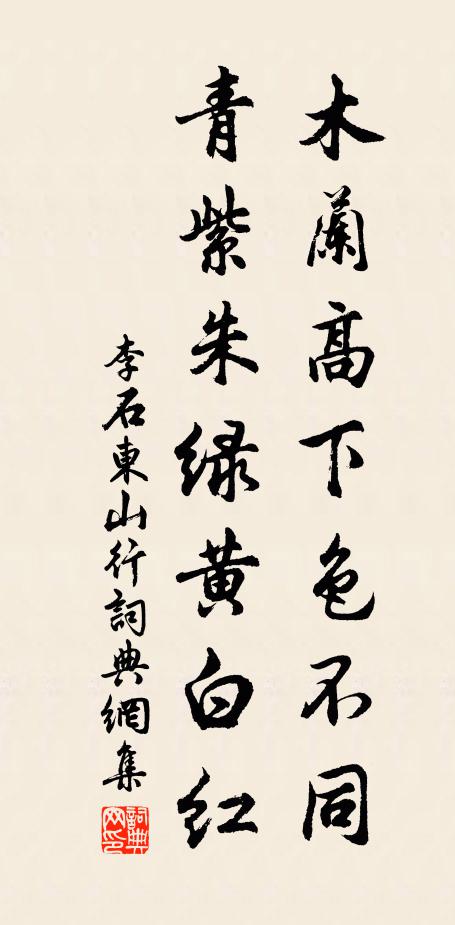 木蘭高下色不同
青紫朱綠黃白紅
李石東山行詞典網集
詞典網印